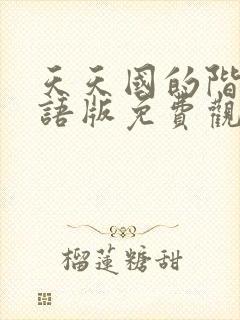 天天國的階
語版免費觀
榴蓮糖甜